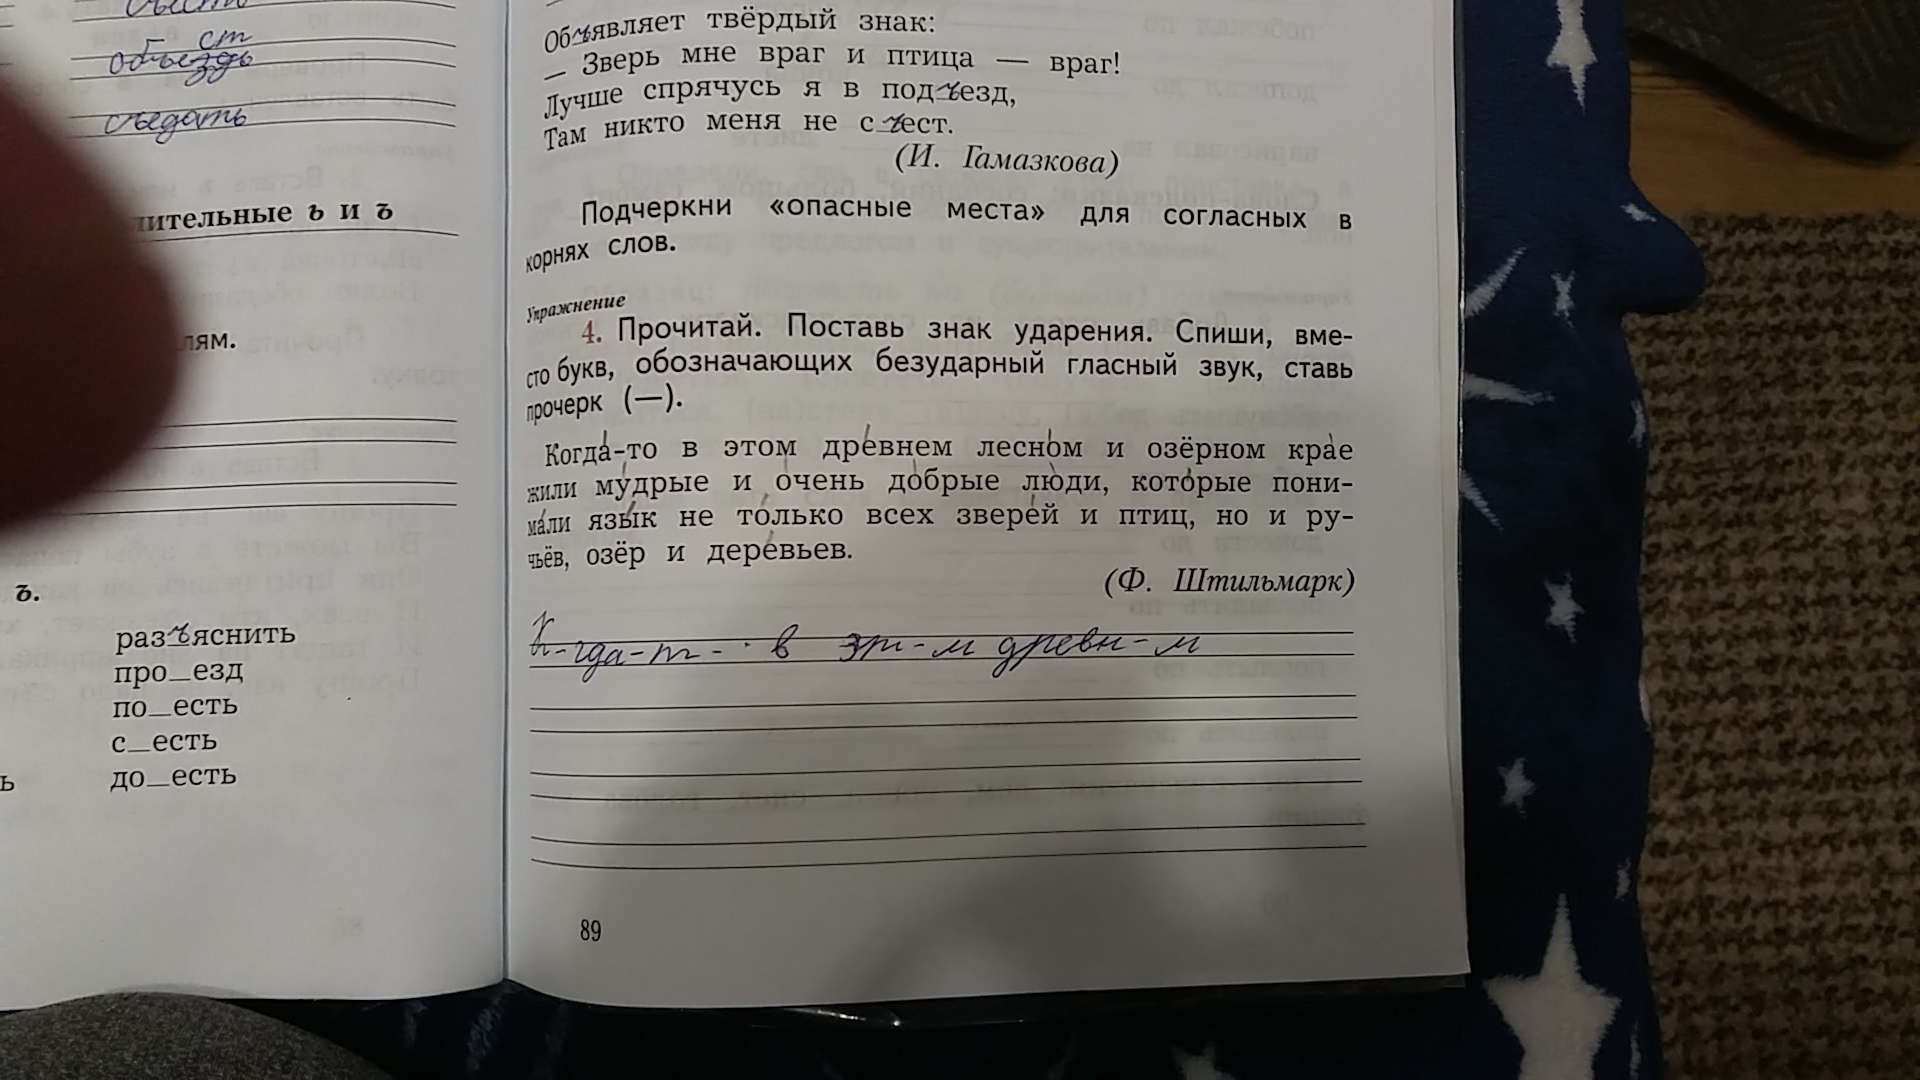 съест
объезд
съедать
ительные ь и ъ
лям.
ъ.
разъяснить
про_езд
по_есть
с_есть
до_есть
ь
Объявляет твёрдый знак:
— Зверь мне враг и птица — враг!
Лучше спрячусь я в подъезд,
Там никто меня не съест.
(И. Гамазкова)
Подчеркни «опасные места» для согласных в
корнях слов.
Упражнение
4. Прочитай. Поставь знак ударения. Спиши, вме-
сто букв, обозначающих безударный гласный звук, ставь
прочерк (—).
Когда́-то в э́том дре́внем лесно́м и озёрном кра́е
жили му́дрые и о́чень до́брые лю́ди, кото́рые пони-
ма́ли язы́к не то́лько всех звере́й и птиц, но и ру-
чьёв, озёр и дере́вьев.
(Ф. Штильмарк)
К-гда-т- в эт-м древн-м
89